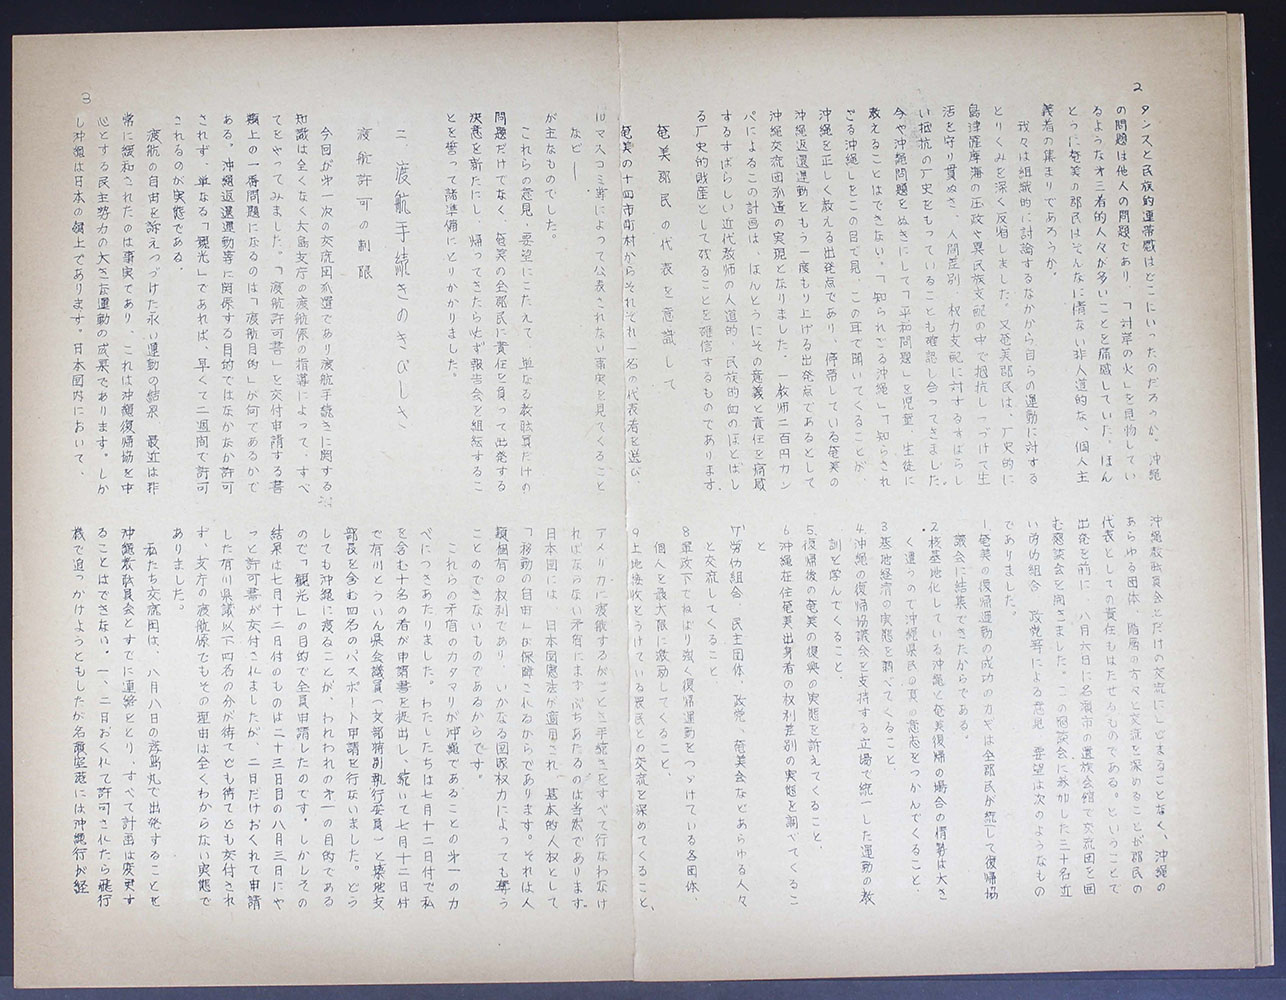 2
タンスと民族的連帯感はどこにいったのだろうか。沖縄
の問題は他人の問題であり、「対岸の火」を見物してい
るような才三者的人々が多いことを痛感していた。ほん
とうに奄美の郡民はそんなに情ない非人道的な、個人主
義者の集まりであろうか。
我々は組織的に討論するなかから自らの運動に対する
とりくみを深く反省しました。又奄美郡民は、厂史的に
島津薩摩藩の圧政や異民族支配の中で抵抗しつづけて生
活を守り貫ぬき、人間差別、権力支配に対するすばらし
い抵抗の厂史をもっていることも確認し合ってきました
今や沖縄問題をぬきにして「平和問題」を児童、生徒に
教えることはできない。「知られざる沖縄」」「知らされ
ざる沖縄」をこの目で見、この耳で聞いてくることが、
沖縄を正しく教える出発点であり、停滞している奄美の
沖縄返還運動をもう一度もり上げる出発点であるとして
沖縄交流団派遣の実現となりました。一教師二百円カン
パによるこの計画は、ほんとうにその意義と責任を痛感
するすばらしい近代教師の人道的、民族的血のほとばし
る厂史的財産として残ることを確信するものであります。
奄美郡民の代表を意識して
奄美の十四市町村からそれぞれ一名の代表者を選び
沖縄教職員会とだけの交流にとどまることなく、沖縄の
あらゆる団体、階層の方々と交流を深めることが郡民の
代表としての責任もはたせるものである。ということで
出発を前に、八月六日に名瀬市の遺族会館で交流団を囲
む懇談会を開きました。この懇談会に参加した三十名近
い労仂組合、政党等による意見、要望は次のようなもの
でありました。
1 奄美の復帰運動の成功のカギは全郡民が統一して復帰協
議会に結集できたからである。
2 核基地化している沖縄と奄美復帰の場合の情勢は大き
く違うので沖縄県民の真の意志をつかんでくること、
3 基地経済の実態を調べてくること、
4 沖縄の復帰協議会を支持する立場で統一した運動の教
訓を学んでくること、
5 復帰後の奄美の復興の実態を訴えてくること、
6 沖縄在住奄美出身者の権利差別の実態を調べてくるこ
と
7 労仂組合、民主団体、政党、奄美会などあらゆる人々
と交流してくること
8 軍政下でねばり強く復帰運動をつゞけている各団体、
個人を最大限に激励してくること、
9 土地接収をうけている農民との交流を深めてくること、
10 マスコミ等によって公表されない事実を見てくること
など――
が主なものでした。
これらの意見・要望にこたえて、単なる教職員だけの
問題だけでなく、奄美の全郡民に責任を負って出発する
決意を新たにし、帰ってきたら必ず報告会を組織するこ
とを誓って諸準備にとりかかりました。
二 渡航手続きのきびしさ
渡航許可の制限
今回が才一次の交流団派遣であり渡航手続きに関する
知識は全くなく大島支庁の渡航係の指導によって、すべ
てをやってみました。「渡航許可書」を交付申請する書
類上の一番問題になるのは「渡航目的」が何であるかで
ある。沖縄返還運動等に関係する目的ではなかなか許可
されず、単なる「観光」であれば、早くて二週間で許可
されるのが実態である。
渡航の自由を訴えつづけた永い運動の結果、最近は非
常に緩和されたのは事実であり、これは沖縄復帰協を中
心とする民主勢力の大きな運動の成果であります。しか
し沖縄は日本の領土であります。日本国内において、
アメリカに渡航するがごとき手続きをすべて行なわなけ
ればならない矛盾にまずぶちあたるのは当然であります。
日本国には、日本国憲法が適用され、基本的人权として
「移動の自由」が保障されるからであります。それは人
類固有の权利であり、いかなる国家权力によっても奪う
ことのできないものであるからです。
これらの矛盾のカタマリが沖縄であることの才一のカ
べにつきあたりました。わたしたちは七月十二日付で私
を含む十名の者が申請書を提出し、続いて七月十二日付
で有川とういん県会議員(文部特別執行委員)と築地支
部長を含む四名のパスポート申請を行ないました。どう
しても沖縄に渡ることが、われわれの才一の目的である
ので「観光」の目的で全員申請したのです。しかしその
結果は七月十二日付のものは二十三日目の八月三日にや
っと許可書が交付されましたが、二日だけおくれて申請
した有川県議以下四名の分が待てども待てども交付され
ず、支庁の渡航係でもその理由は全くわからない実態で
ありました。
私たち交流団は、八月八日の彦島丸で出発することを
沖縄教職員会とすでに連絡をとり、すべて計画は変更す
ることはできない。一、二日おくれて許可されたら飛行
機で追っかけようともしたが名瀬空港には沖縄行が経
3